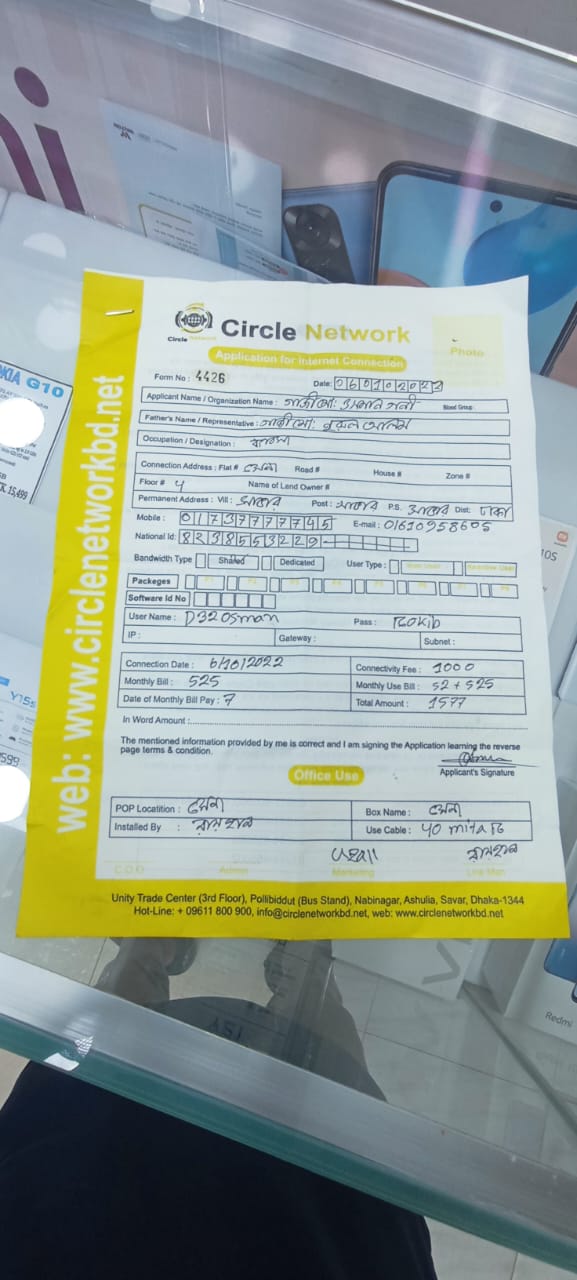 KIA G10
K 15,499
Y15s
599
10S
Redmi
web: www.circlenetworkbd.net
Circle Network
Circle Network
Application for Internet Connection
Photo
Form No : 4426
Date: 06102022
Applicant Name / Organization Name :
Blood Group
Father's Name / Representative :
Occupation / Designation :
Connection Address : Flat # Road # House # Zone #
Floor # 4 Name of Land Owner #
Permanent Address : Vill : সাভার Post : সাভার P.S. সাভার Dist: ঢাকা
Mobile : 01737777745 E-mail : 01610958605
National Id: 8238553229
Bandwidth Type Shared Dedicated User Type :
Packeges
Software Id No
User Name : D320sman Pass : Rokib
IP : Gateway : Subnet :
Connection Date : 6/10/2022 Connectivity Fee : 1000
Monthly Bill : 525 Monthly Use Bill : 52 + 525
Date of Monthly Bill Pay : 7 Total Amount : 1577
In Word Amount :
The mentioned information provided by me is correct and I am signing the Application learning the reverse
page terms & condition.
Applicant's Signature
Office Use
POP Locatition : সেনা Box Name : সেনা
Installed By : Use Cable : 40 mitar
C.O.O Admin Marketing Line Man
Unity Trade Center (3rd Floor), Pollibiddut (Bus Stand), Nabinagar, Ashulia, Savar, Dhaka-1344
Hot-Line: + 09611 800 900, info@circlenetworkbd.net, web: www.circlenetworkbd.net